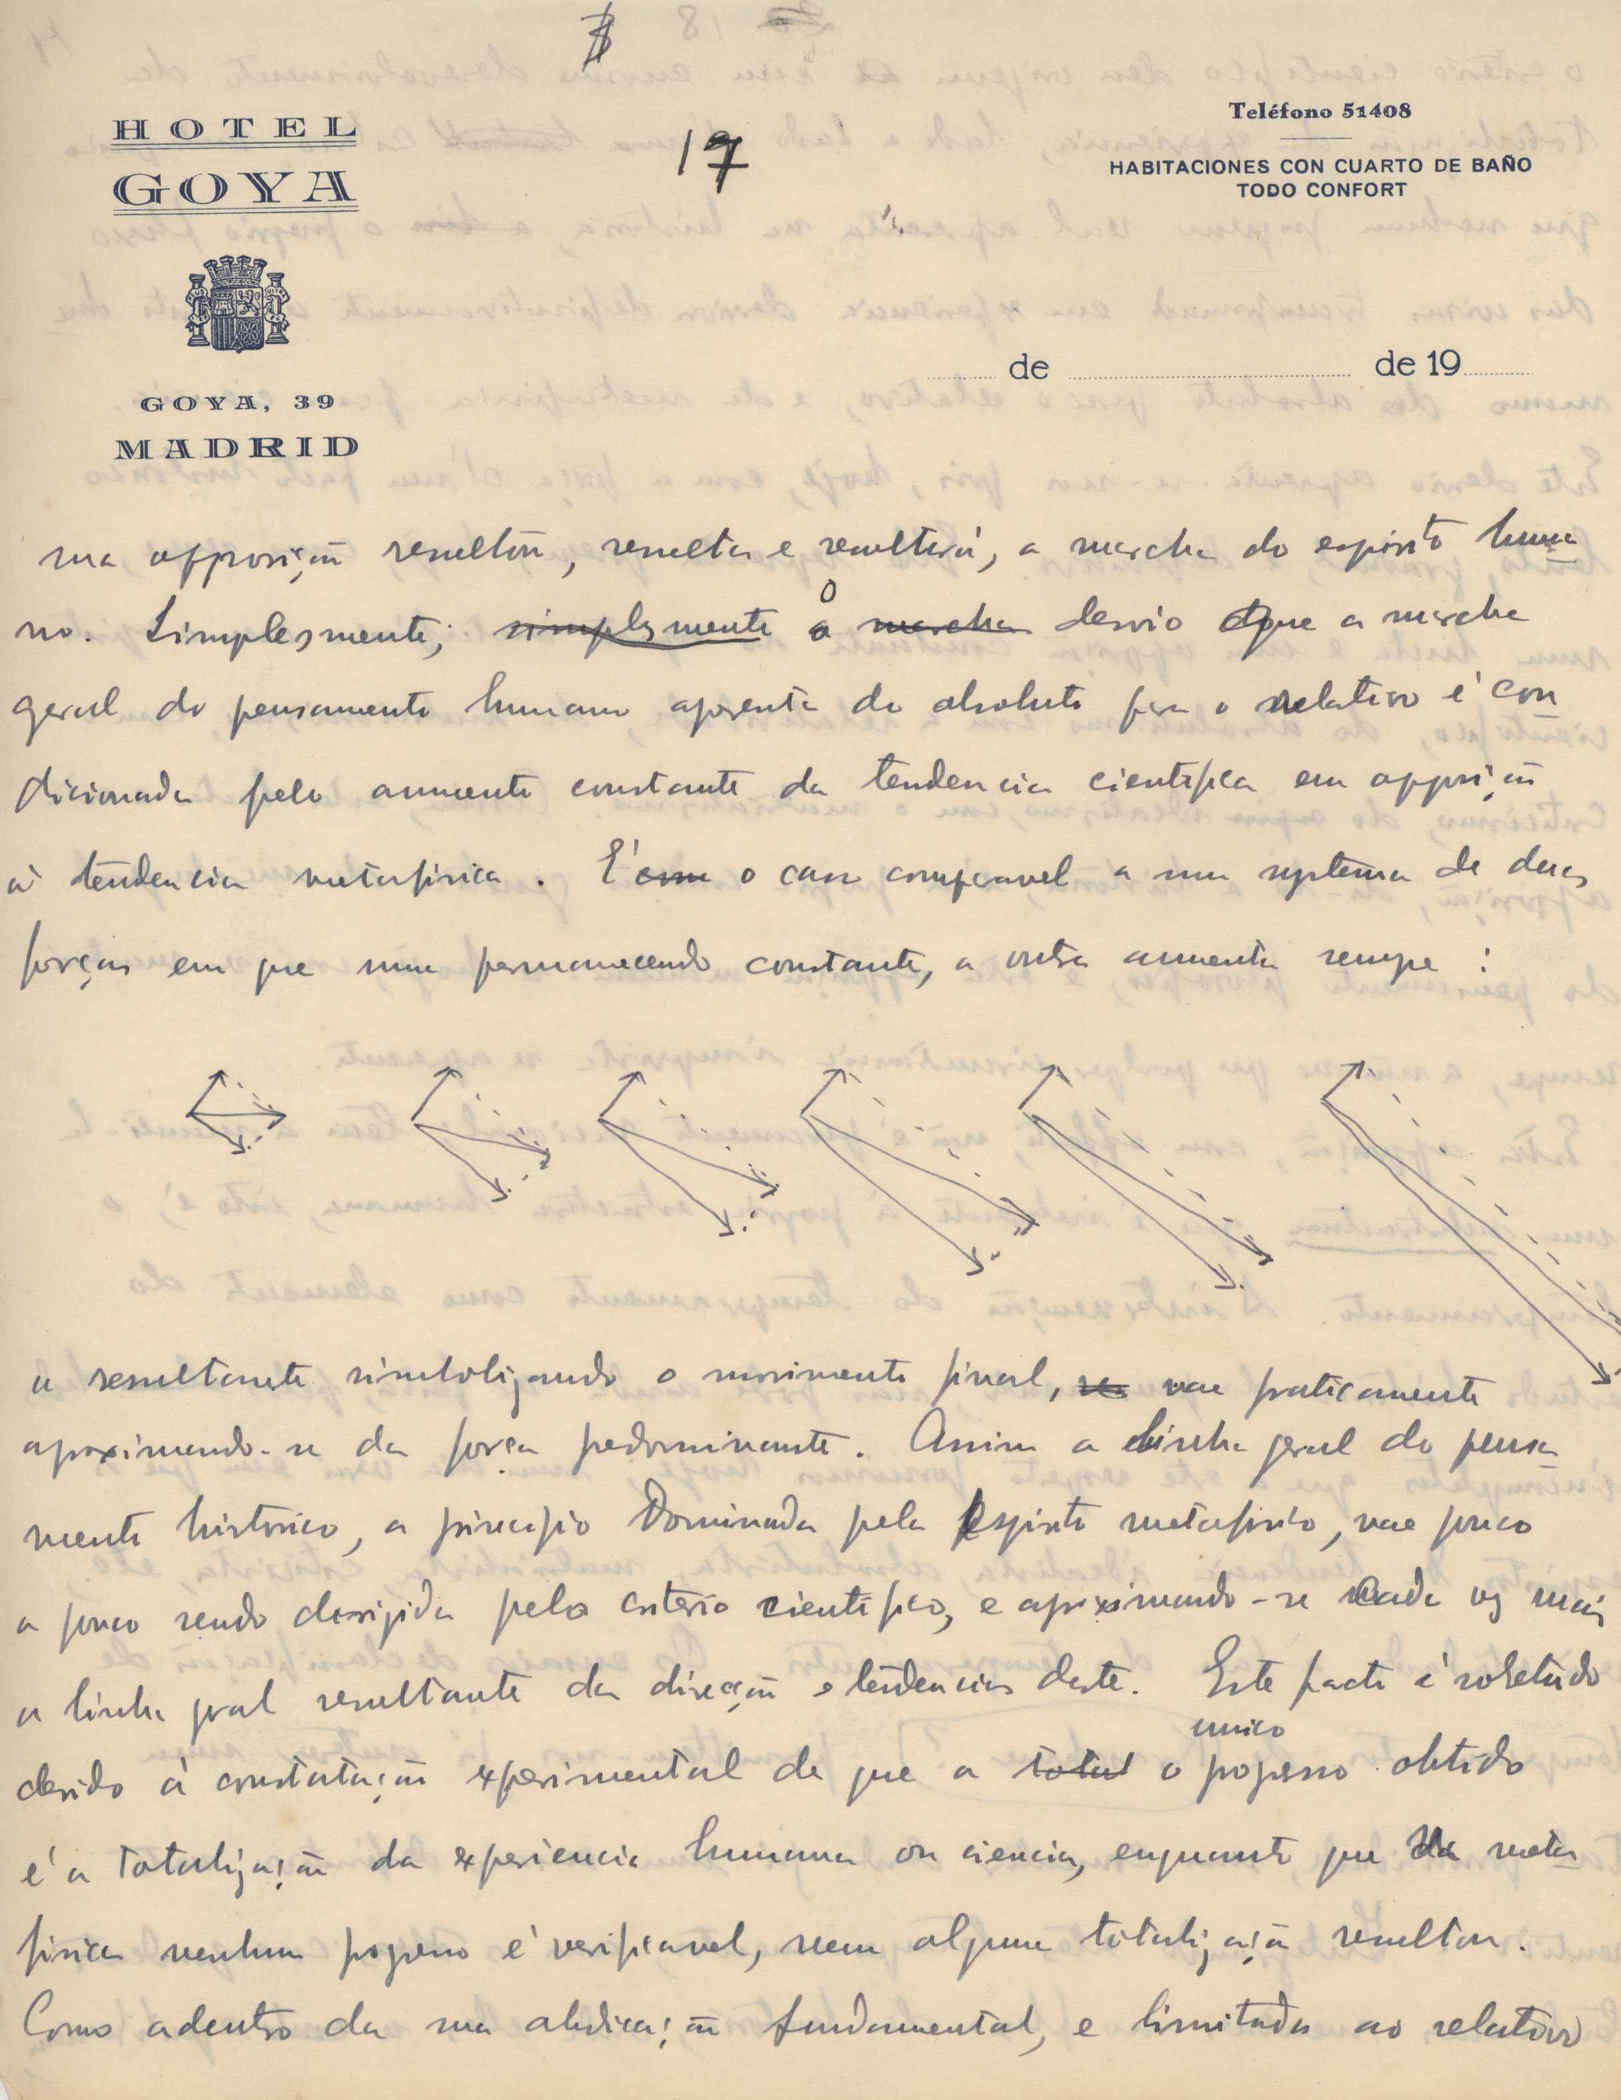 17
HOTEL
GOYA
GOYA, 39
MADRID
Teléfono 51408
HABITACIONES CON CUARTO DE BAÑO
TODO CONFORT
de de 19
sua opposição resultou, resulta e resultará, a marcha do espirito huma
no. Simplesmente, simplesmente o marcha desvio que a marcha
geral do pensamento humano apresenta do absoluto para o relativo é con
dicionada pelo aumento constante da tendencia cientifica em opposição
á tendencia metafisica. É como o caso comparavel a um systema de duas
forças em que uma permanecendo constante, a outra aumenta sempre :
a resultante simbolizando o movimento final, vae praticamente
aproximando-se da força predominante. Assim a linha geral do pensa
mento historico, a principio dominada pelo espirito metafisico, vae pouco
a pouco sendo dirigida pelo criterio cientifico, e aproximando-se cada vez mais
a linha geral resultante da direcção e tendencias deste. Este facto é sobretudo
unico
devido á constatação experimental de que a total o progresso obtido
é a totalização da experiencia humana ou ciencia, enquanto que da meta
fisica nenhum progresso é verificavel, nem alguma totalização resultou.
Como adentro da sua abdicação fundamental, e limitada ao relativo